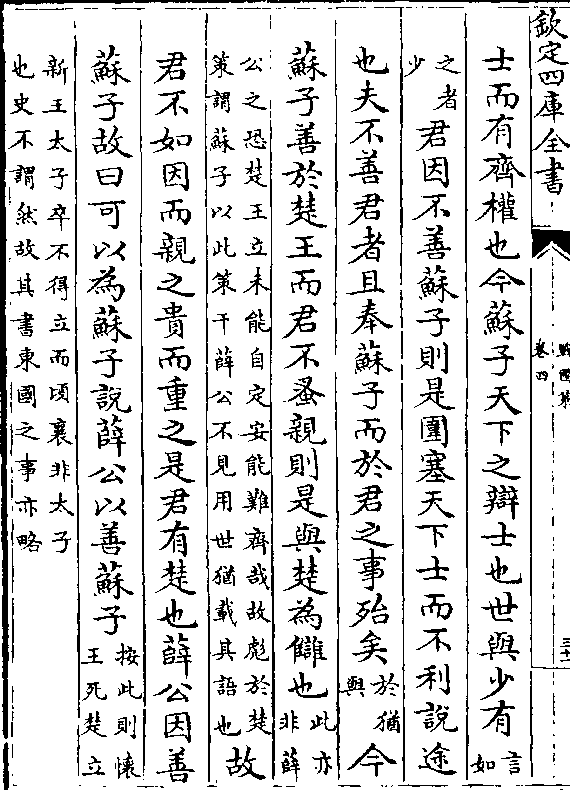 欽定四庫全書
戰國策
卷四
三十
士而有齊權也今蘇子天下之辯士也世與少有言如
之者少君因不善蘇子則是圍塞天下士而不利說途
也夫不善君者且奉蘇子而於君之事殆矣於猶與今
蘇子善於楚王而君不蚤親則是與楚為讎也此亦非薛
公之恐楚王立未能自定安能難齊哉故彪於楚策謂蘇子以此策干薛公不見用世猶載其語也故
君不如因而親之貴而重之是君有楚也薛公因善
蘇子故曰可以為蘇子說薛公以善蘇子按此則懷王死楚立
新王太子卒不得立而頃襄非太子也史不謂然故其書東國之事亦略